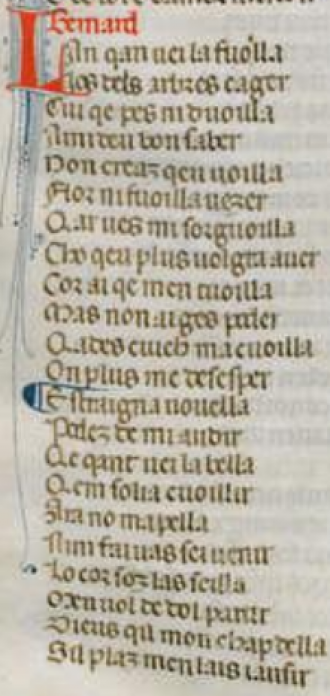 Bernard
Lan qan uei la fuoilla
Ios dels arbres cager
Cui qe pes ni duoilla
A mi deu bon saber
Non creaz qeu uoilla
Flor ni fuoilla uezer
Qar ues mi sorguoilla
Cho qeu plus uolgra auer
Cor ai qe men tuoilla
Mas non ai ges poder
Qades cuich macuoilla
On plus me desesper
Estraigna nouella
Podez de mi audir
Qe qant uei la bella
Qem solia cuoillir
Ara no mapella
Nim fai uas sei uenir
Lo cor soz las sella
Oxen uol de dol partir
Dieus qil mon chapdella
Sil plaz men lais iausir